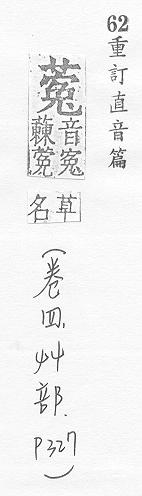 62重訂直音篇
蒬
音冤
蘈蒬
草名
(卷四.艸部.P327)